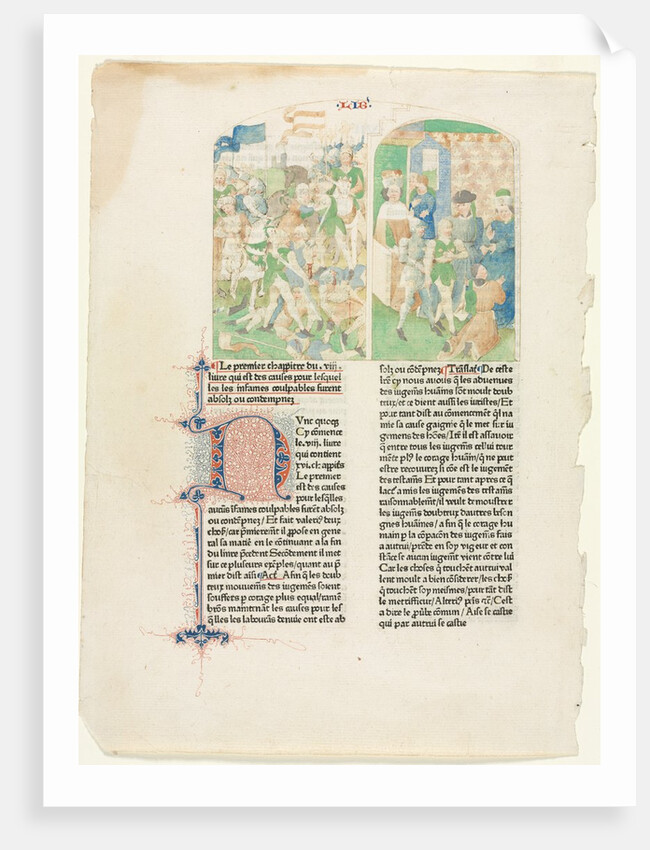 LIB'
Le premier chappitre du .viij.
livre qui est des causes pour lesquel
les les infames coulpables furent
absolz ou contempnez
Vnc quoqz
Cy cōmence
le .viij. livre
qui contient
xvi. chapp̄s
Le premier
est des causes
pour lesq̄lles
aucūs īfames coulpables furēt absolz
ou contēpnez / Et fait valeri9 deux
choses car premieremēt il ppose en gene
ral sa matiē en le cōtinuant a la fin
du livre p̄cedent Secōdement il met
sur ce pluseurs exēples / quant au p̄
mier dist ainsi Act' Afin q̄ les doub
teux mouvemēs des iugemēs soient
souffers p corage plus equal / ramē
brōs maintnāt les causes pour les
q̄lles les labourās denuie ont este ab
solz ou cōdēpnez Traslat' De ceste
l're cy nous avons q̄ les advenues
des iugemēs hūaīs sōt moult doub
teux / et ce dient aussi les iuristes / Et
pour tant dist au cōmencemēt q̄l na
mie sa cause gaignie q̄ le met sur iu
gemens des hōes / Itē il est assavoir
q̄ entre tous les iugems cellui tour
mēte pl9 le corage hūaīn / q̄ ne puet
estre recouvre
des testamēs Et pour tant apres ce q̄
lact'a mis les iugemēs des testamēs
raisonnablemēt / il veult demōstrer
les iugemēs doubteux dautres besoi
gnes hūaines / a fin q̄ le corage hu
main p la cōpacōn des iugemēs fais
a autrui / prēde en soy vigeur et con
stāce se aucun iugemēt vient cōtre lui
Car les choses q̄ touchēt autrui val
lent moult a bien cōsiderer / les choses
q̄ touchēt soy meismes / pour tāt dist
le metrifficur / Alteri9 Cest
a dire le commun / Aise se castie
qui par autrui se castie